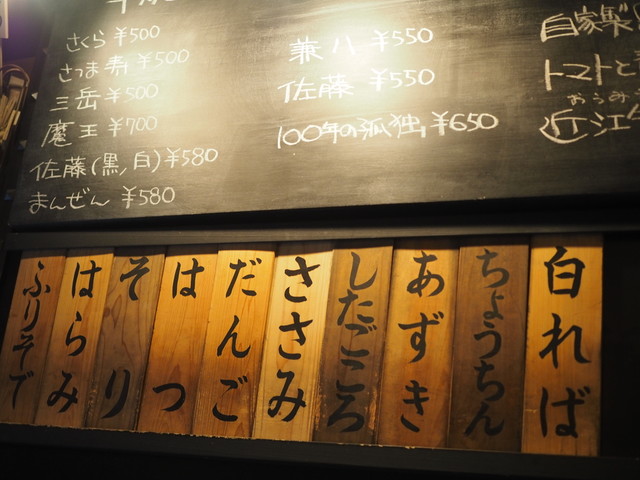 さくら ¥500
さつま寿 ¥500
三岳 ¥500
魔王 ¥700
佐藤(黒,白)¥580
まんぜん ¥580
兼八 ¥550
佐藤 ¥550
100年の孤独 ¥650
自家製
トマトと
おうみ
近江牛
白ればー
ちょうちん
あずき
したごころ
ささみ
だんご
はつ
そり
はらみ
ふりそで